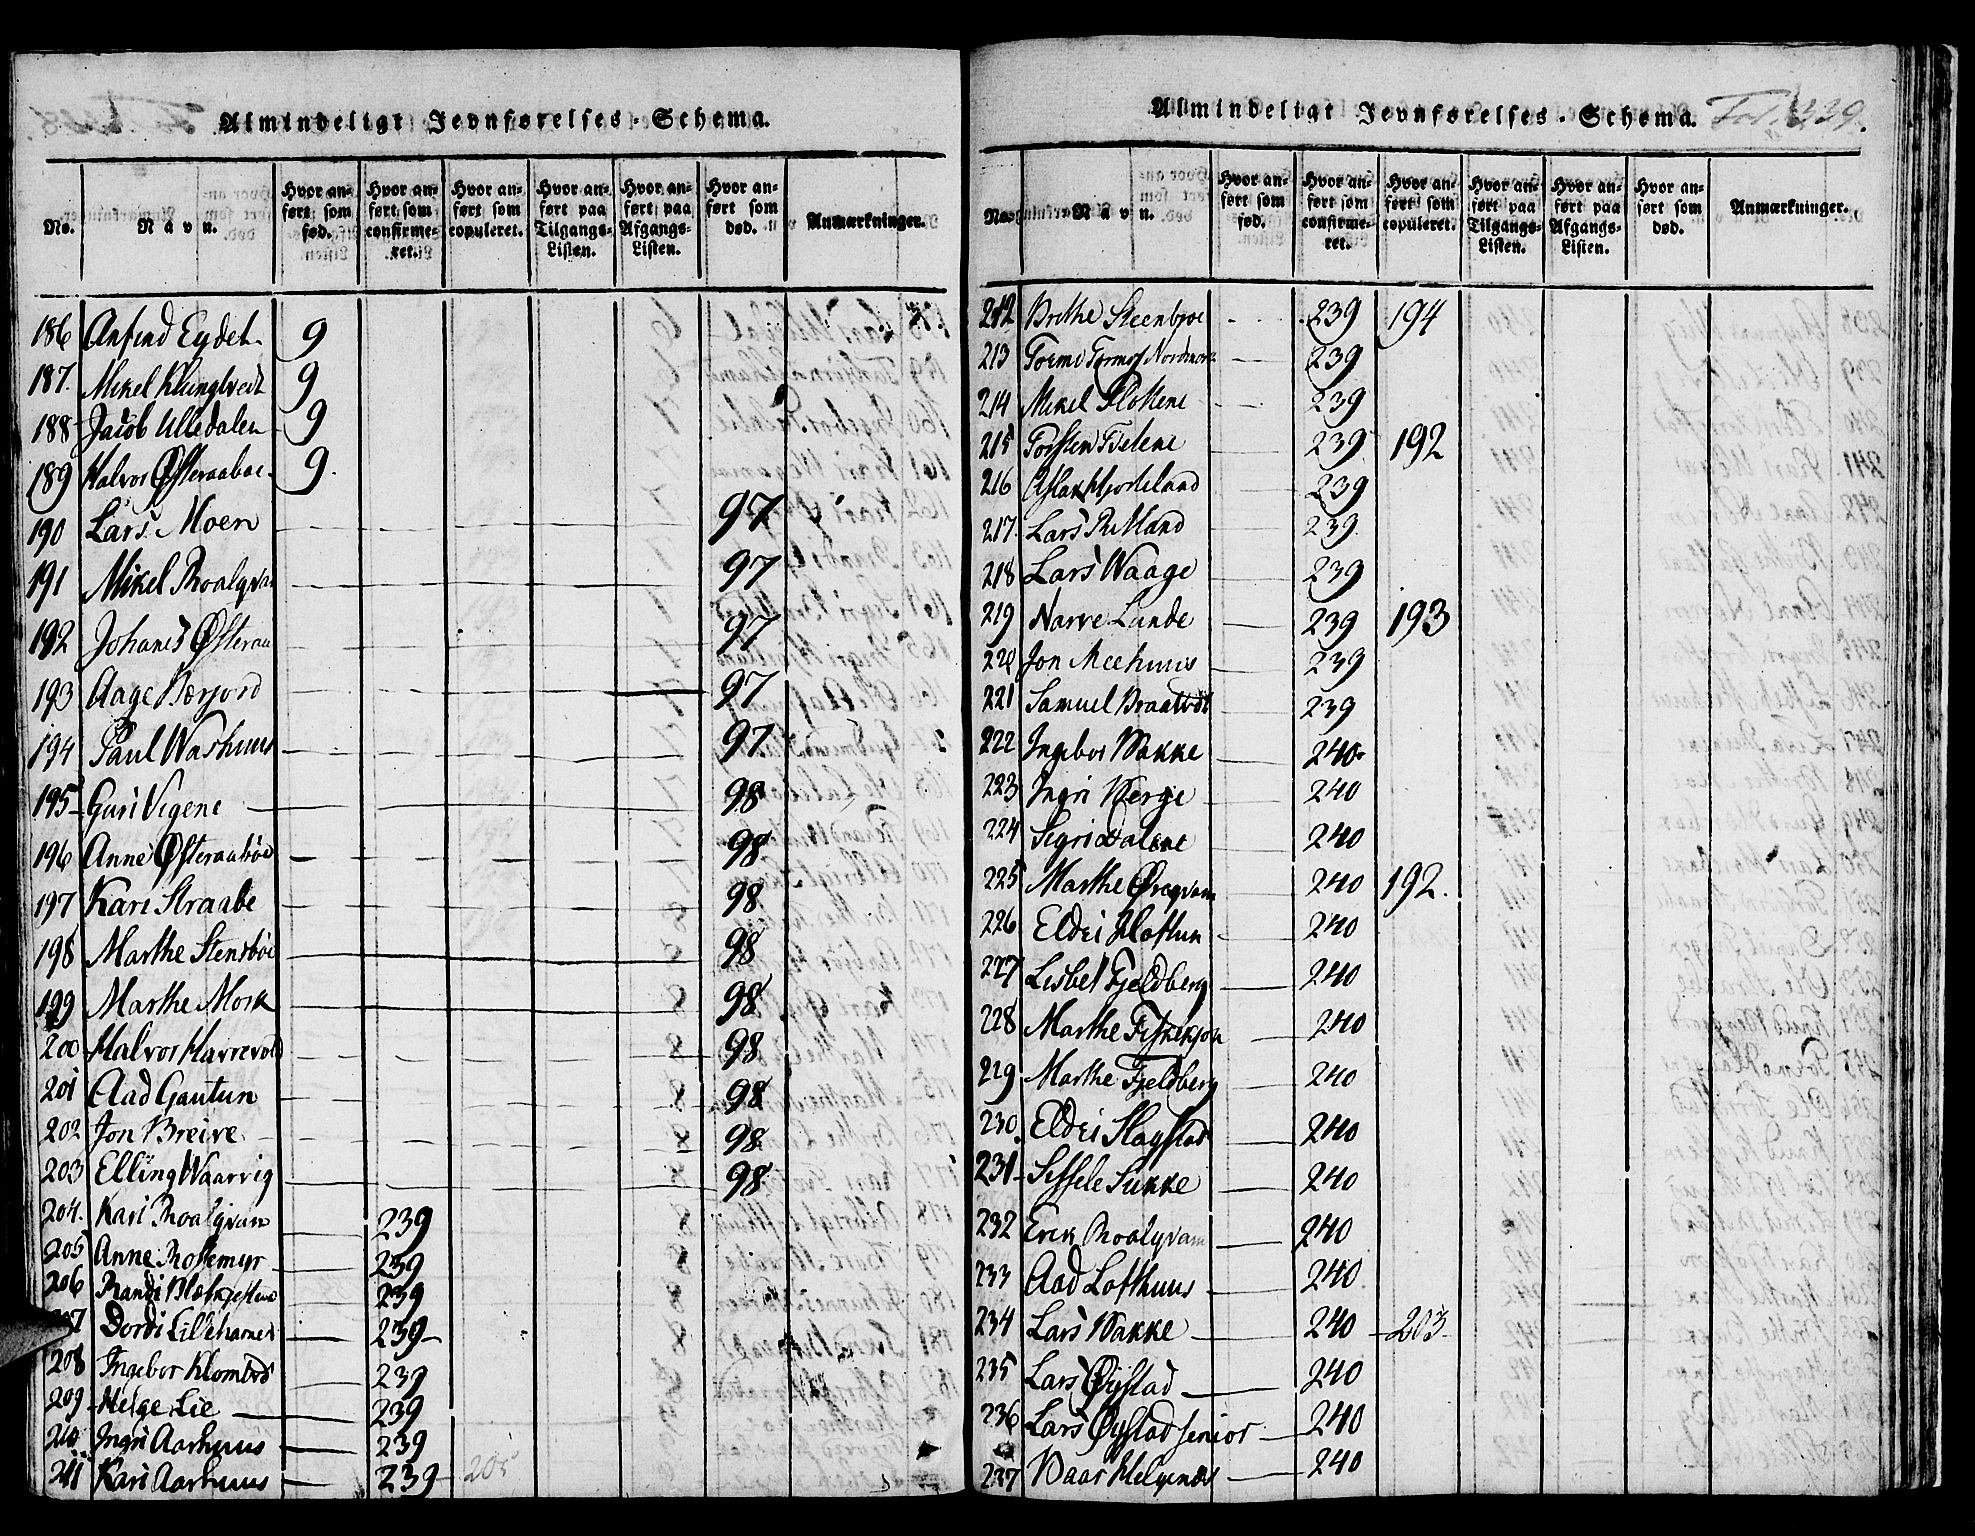 Almindeligt Jevnførelses-Schema.
No. Navn. Hvor anført som fød. Hvor anført som confirmeret. Hvor anført som copuleret. Hvor anført paa Tilgangs-Listen. Hvor anført paa Afgangs-Listen. Hvor anført som død. Anmærkninger.
186 Anfind Eydet 9
187. Mikel Klungtvedt 9
188 Jacob Ulledalen 9
189 Halvor Østeraaboe 9.
190 Lars Moen 97
191 Mikel Roalqvam 97
192 Johanes Østeraa 97
193 Aage Børjord 97
194 Paul Washuus 97
195 Guri Vigene 98
196 Anne Østeraaboe 98
197 Kari Straabe 98
198 Marthe Stensböe 98
199 Marthe Mosk 98
200 Halvor Harrevold 98
201 Aad Gautun 98
202 Jon Breive 98
203 Elling Waarvig 98
204. Kari Roalqvam 239
205 Anne Rossemyr 239
206 Randi 239
207 Dordi Lillehamer 239
208 Ingebor Klombrod 239
209 Helge Lie 239
210 Ingri Aarhuus 239
211 Kari Aarhuus 239 205
Almindeligt Jevnførelses-Schema. Fol. 339.
No. Navn. Hvor anført som fød. Hvor anført som confirmeret. Hvor anført som copuleret. Hvor anført paa Tilgangs-Listen. Hvor anført paa Afgangs-Listen. Hvor anført som død. Anmærkninger.
212 Brithe Steenbroe 239 194
213 Tormo Tormos Nordmork 239
214 Mikel Flottene 239
215 Torsten Tveitene 239 192
216 Aslak Hjorteland 239
217. Lars Rilland 239
218 Lars Waage 239
219 Narve Lunde 239 193
220 Jon Meehuus 239
221 Samuel Braatvedt 239
222 Ingebor Bakke 240
223 Ingri Berge 240
224 Segri Dalene 240
225 Marthe Øreqvam 240 192.
226 Eldri Hoftun 240
227 Lisbet Fjeldberg 240
228 Marthe Fiskekjon 240
229 Marthe Fjeldberg 240
230. Eldri Slagstad 240
231 Sissele Sukke 240
232 Erik Roalqvam 240
233 Aad Lofthuus 240
234 Lars Bakke 240 203
235 Lars Øystad 240
236 Lars Øystad senior 240
237 Baar Helgenæs 240